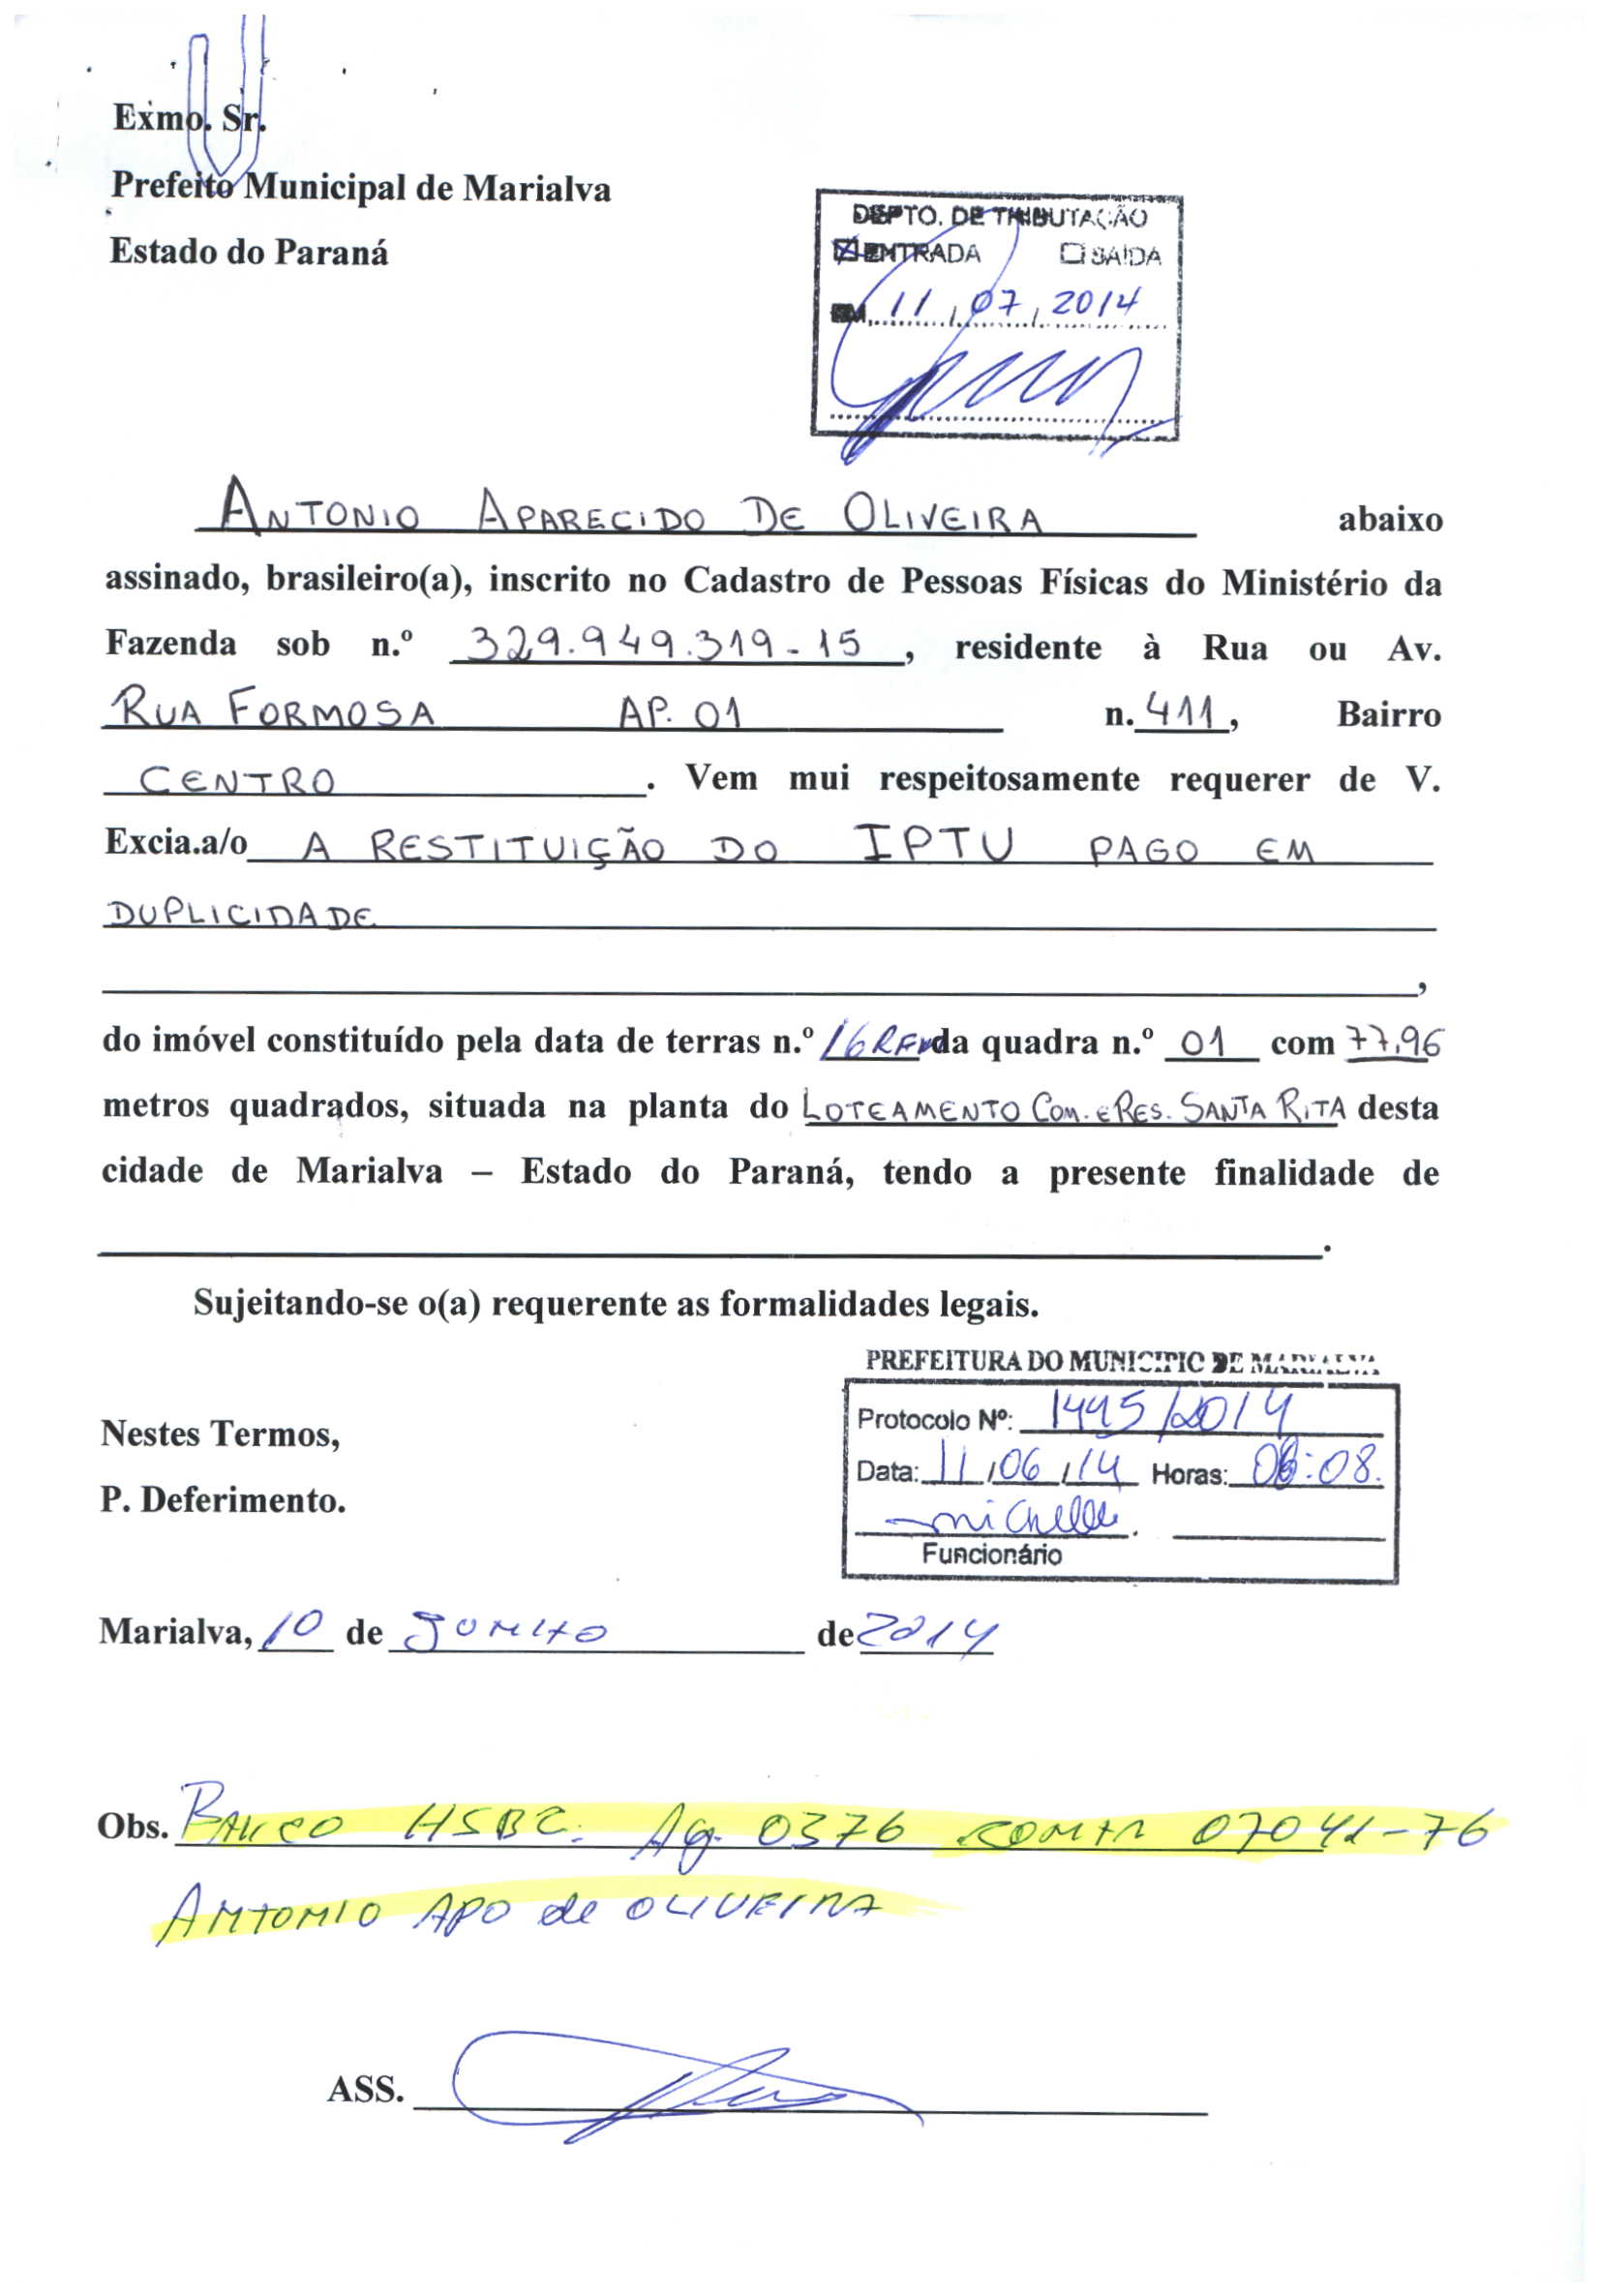 Exmo. Sr.
Prefeito Municipal de Marialva
Estado do Paraná
DEPTO. DE TRIBUTAÇÃO
ENTRADA SAÍDA
EM, 11, 07, 2014
ANTONIO APARECIDO DE OLIVEIRA abaixo
assinado, brasileiro(a), inscrito no Cadastro de Pessoas Físicas do Ministério da
Fazenda sob n.º 329.949.319-15, residente à Rua ou Av.
RUA FORMOSA AP. 01 n. 411, Bairro
CENTRO. Vem mui respeitosamente requerer de V.
Excia.a/o A RESTITUIÇÃO DO IPTU PAGO EM
DUPLICIDADE
,
do imóvel constituído pela data de terras n.º 16 da quadra n.º 01 com 77,96
metros quadrados, situada na planta do LOTEAMENTO COM. E RES. SANTA RITA desta
cidade de Marialva – Estado do Paraná, tendo a presente finalidade de
.
Sujeitando-se o(a) requerente as formalidades legais.
PREFEITURA DO MUNICIPIO DE MARIALVA
Protocolo Nº: 1445/2014
Data: 11/06/14 Horas: 08:08.
michelle
Funcionário
Nestes Termos,
P. Deferimento.
Marialva, 10 de JUNHO de 2014
Obs. BANCO HSBC. Ag. 0376 CONTA 07041-76
ANTONIO APO de OLIVEIRA
ASS.